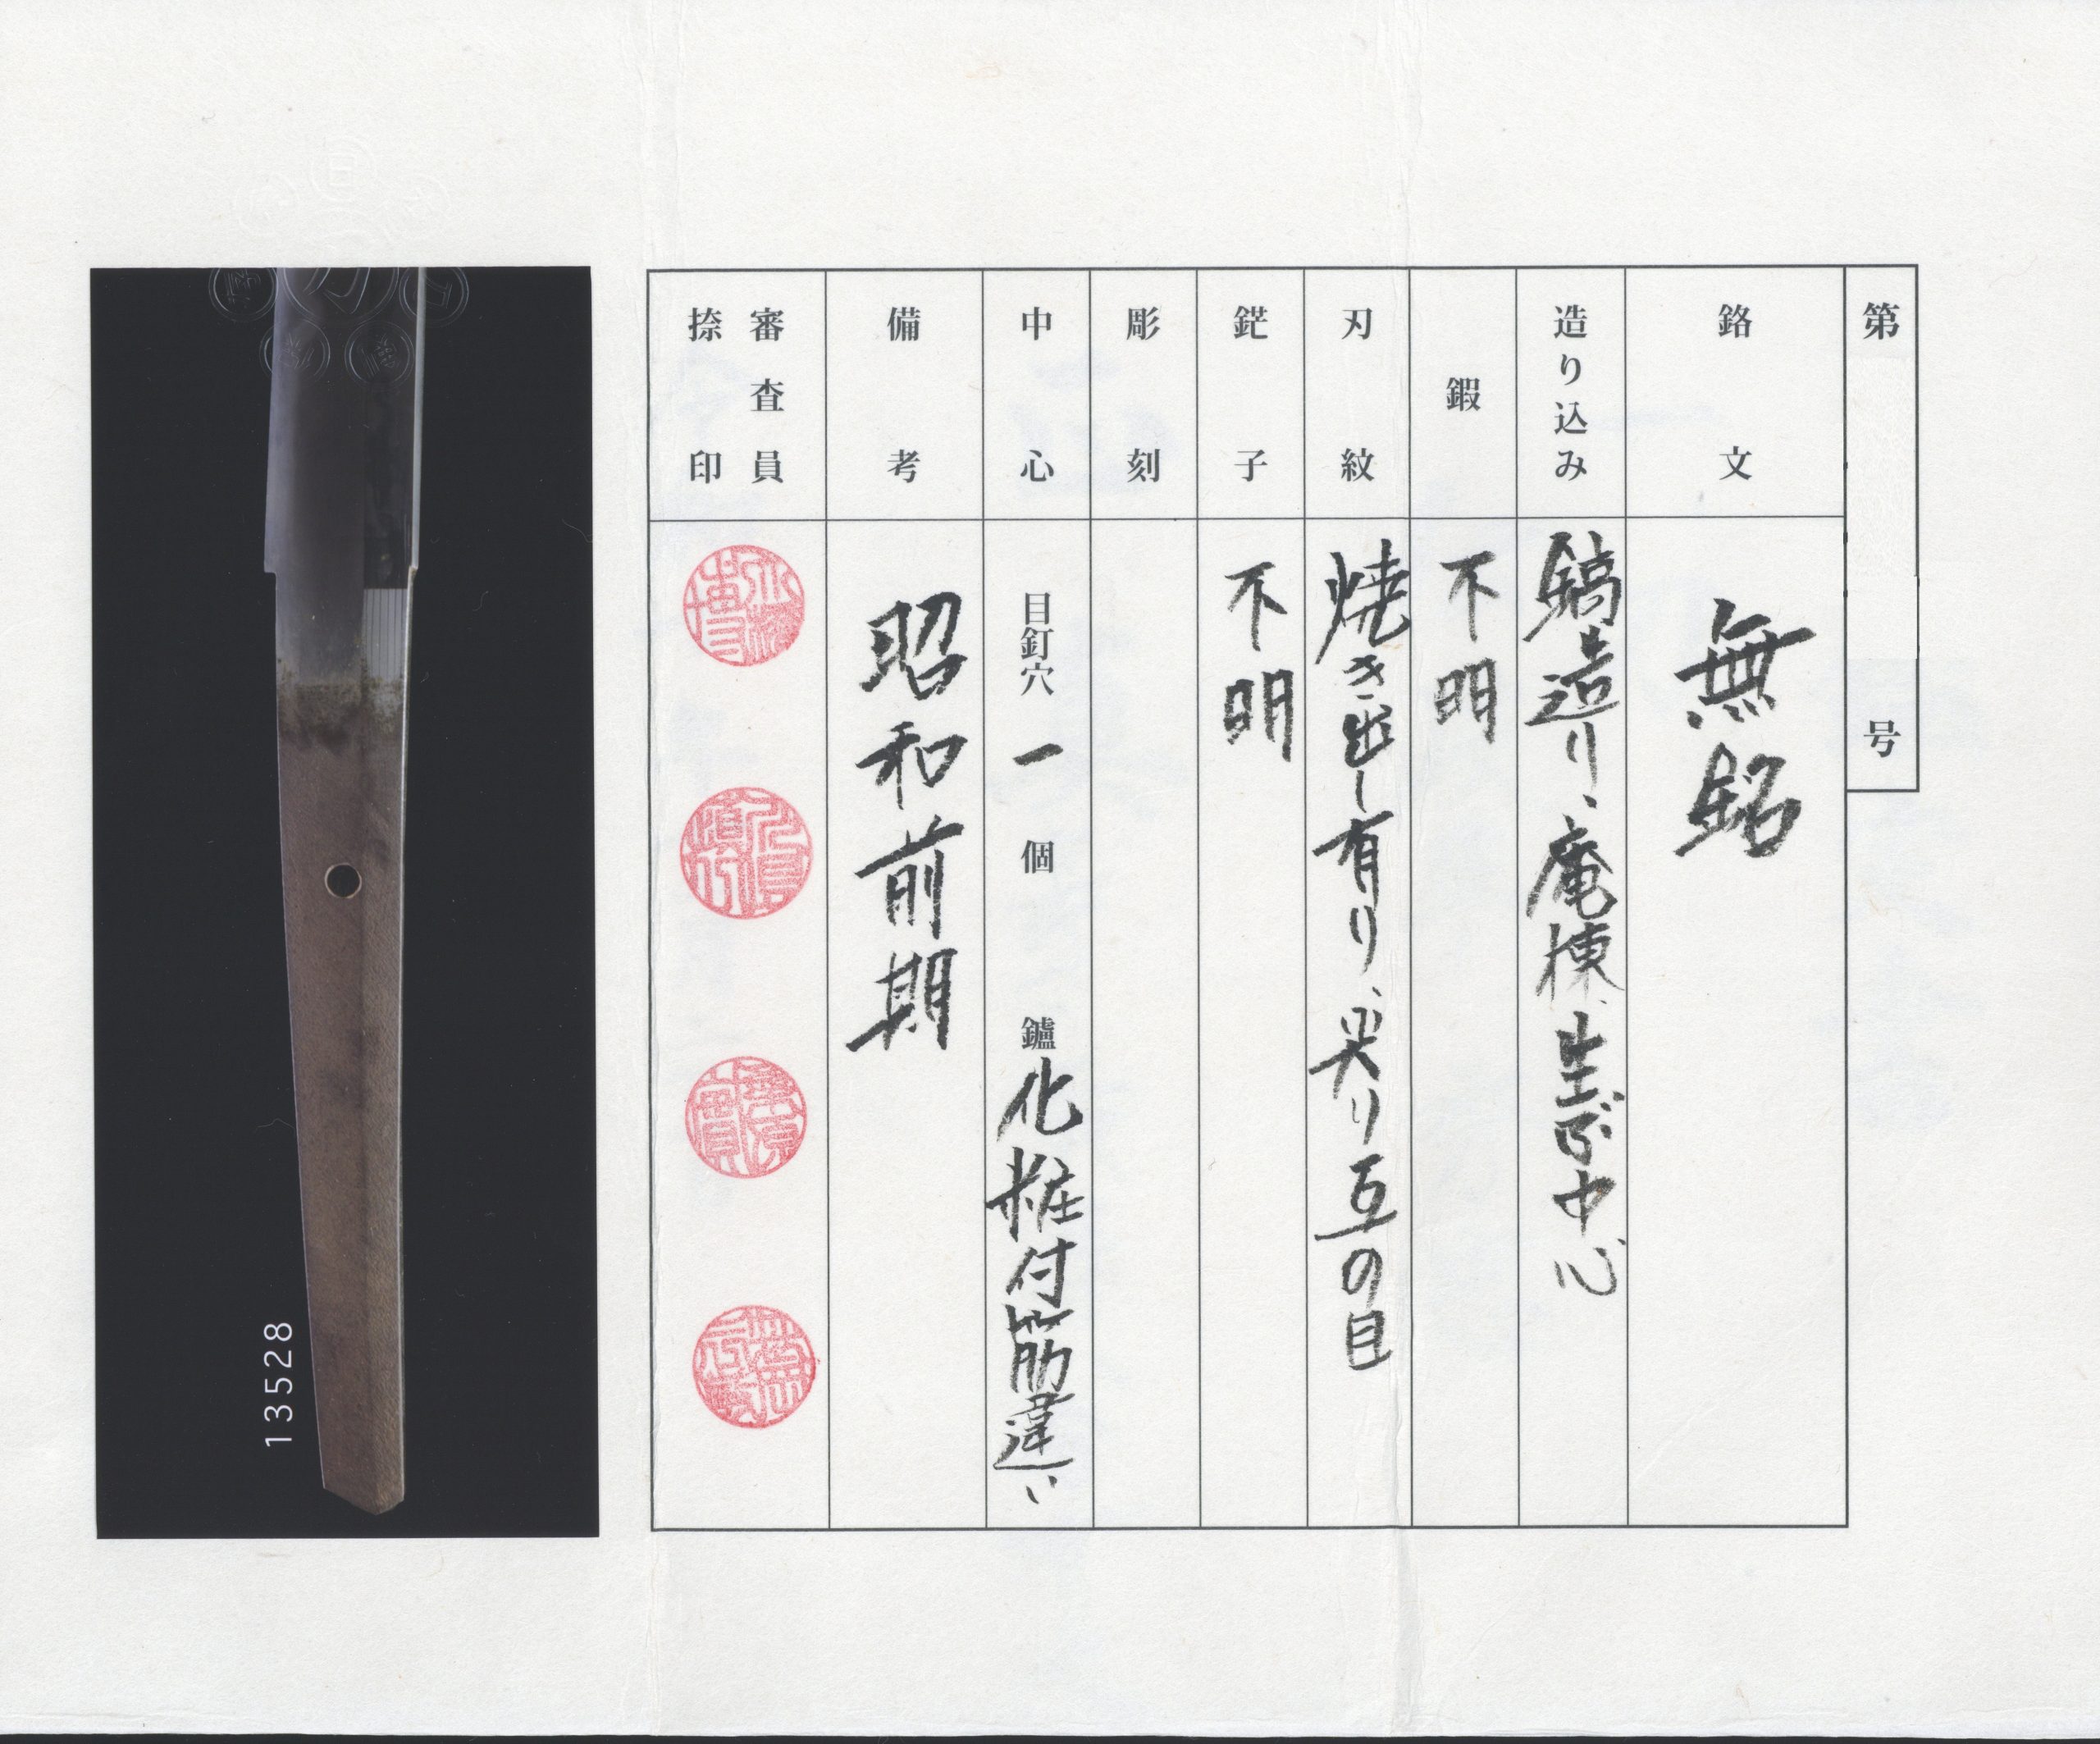 第 号
銘文 無銘
造り込み 鎬造り、庵棟、生ぶ中心
鍜 不明
刃紋 焼き出し有り、尖り互の目
鋩子 不明
彫刻
中心 目釘穴 一 個 鑢 化粧付筋違い
備考 昭和前期
審査員
捺印
13528